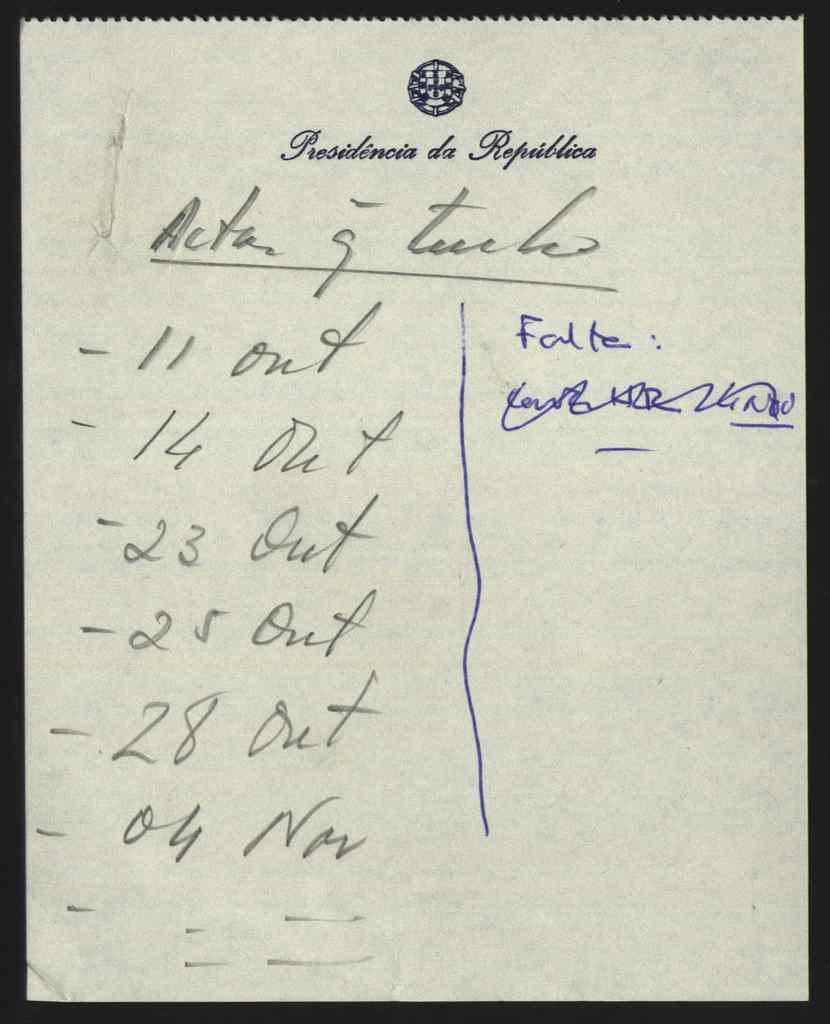 Presidência da República
Actas q tenho
- 11 out
- 14 Out
- 23 Out
- 25 Out
- 28 Out
- 04 Nov
Falta: